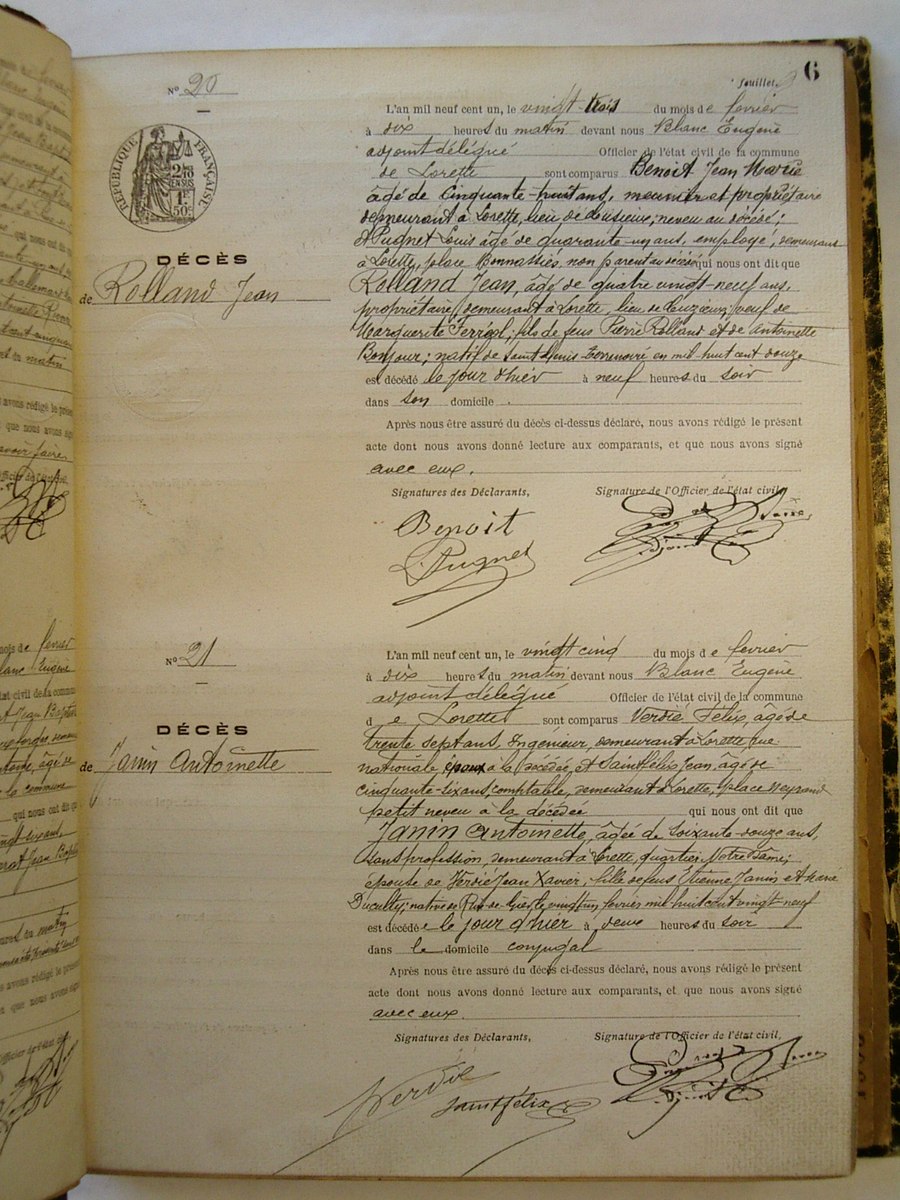 feuillet 6
Nº 20
RÉPUBLIQUE FRANÇAISE
2/10 EN SUS
1F 50c
L'an mil neuf cent un, le vingt trois du mois de février
à dix heures du matin devant nous Blanc Eugène
adjoint délégué Officier de l'état civil de la commune
de Lorette sont comparus Benoit Jean Marie
âgé de cinquante-huit ans, meunier et propriétaire
demeurant à Lorette, lieu de neveu au décédé;
et Pugnet Louis âgé de quarante-un ans, employé, demeurant
à Lorette, place Bonnassiès, non parent au décédé qui nous ont dit que
DÉCÈS
de Rolland Jean
Rolland Jean, âgé de quatre vingt-neuf ans,
propriétaire, demeurant à Lorette, lieu de veuf de
Marguerite Ferréol, fils de feus Pierre Rolland et de Antoinette
Bonjour; natif de Saint Genis Terrenoire en mil huit cent douze
est décédé le jour d'hier à neuf heures du soir
dans son domicile.
Après nous être assuré du décès ci-dessus déclaré, nous avons rédigé le présent
acte dont nous avons donné lecture aux comparants, et que nous avons signé
avec eux.
Signatures des Déclarants,
Signature de l'Officier de l'état civil,
Benoit
L. Pugnet
Nº 21
L'an mil neuf cent un, le vingt cinq du mois de février
à dix heures du matin devant nous Blanc Eugène
adjoint délégué Officier de l'état civil de la commune
de Lorette sont comparus Verdié Félix, âgé de
trente sept ans, Ingénieur, demeurant à Lorette, rue
nationale à la décédée, et Saintfélix Jean, âgé de
cinquante-six ans, comptable, demeurant à Lorette, place Neyrand
petit neveu à la décédée qui nous ont dit que
DÉCÈS
de Janin Antoinette
Janin Antoinette, âgée de soixante-douze ans,
sans profession, demeurant à Lorette, quartier Notre Dame;
épouse de Verdié Jean Xavier, fille de feus Etienne Janin et
Duculty; native de Rive de Gier le vingt un février mil huit cent vingt-neuf
est décédée le jour d'hier à deux heures du soir
dans le domicile conjugal
Après nous être assuré du décès ci-dessus déclaré, nous avons rédigé le présent
acte dont nous avons donné lecture aux comparants, et que nous avons signé
avec eux.
Signatures des Déclarants,
Signature de l'Officier de l'état civil,
Verdié
Saintfélix